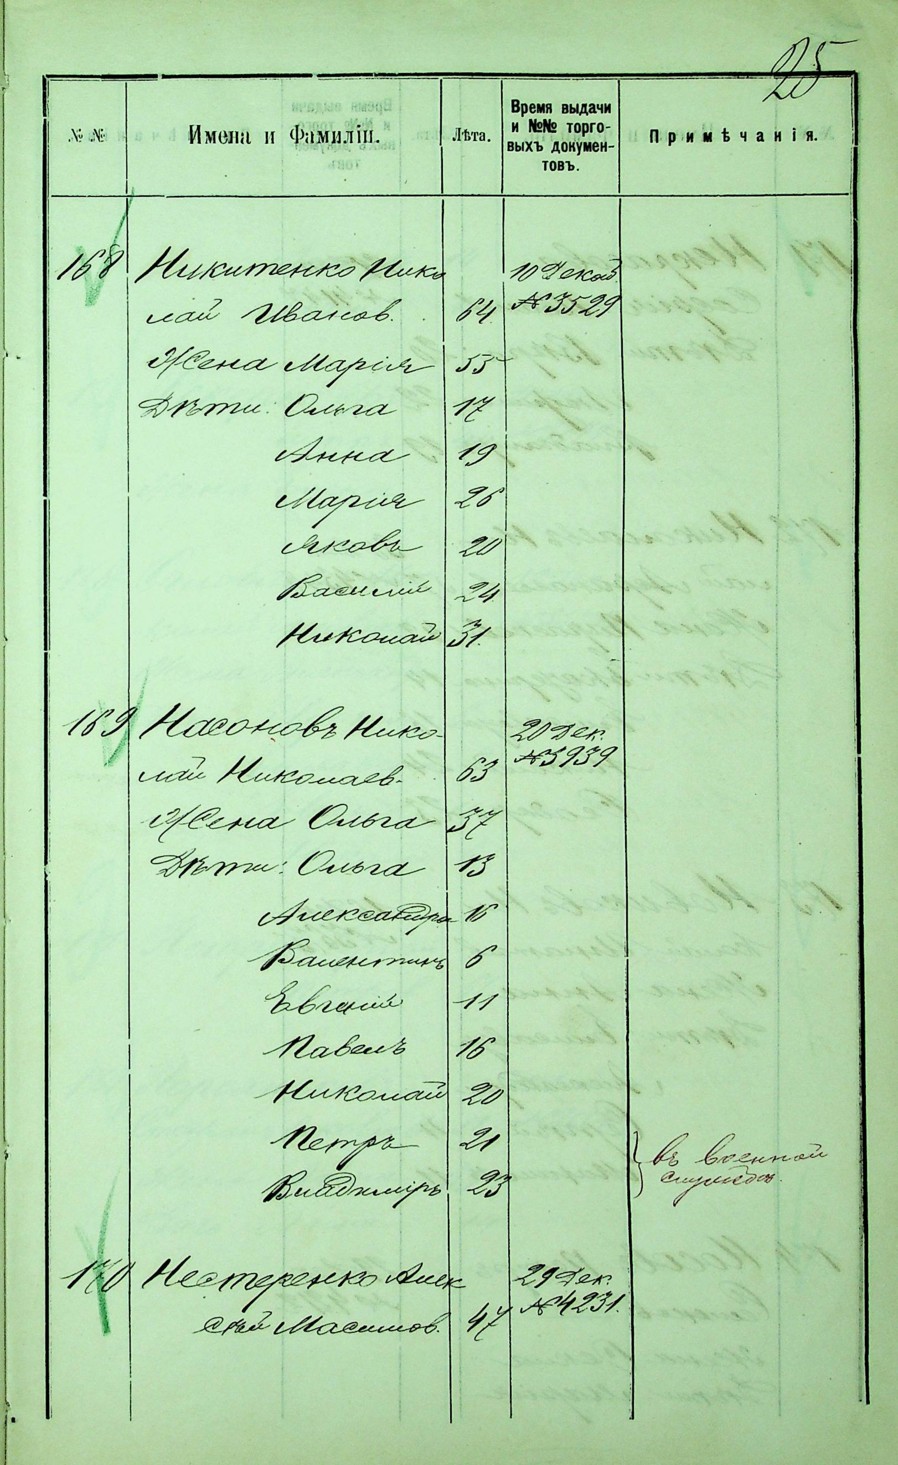 25
№ №
Имена и Фамиліи.
Лѣта.
Время выдачи
и №№ торго-
выхъ докумен-
товъ.
Примѣчанія.
168 Никитенко Нико 10 Декаб.
лай Иванов. 64 № 3529
Жена Марія 55
Дѣти: Ольга 17
Анна 19
Марія 26
Яковъ 20
Василій 24
Николай 31.
169 Насоновъ Нико- 20 Дек.
лай Николаев. 63 № 3939
Жена Ольга 37
Дѣти: Ольга 13
Александра
Валентинъ 6
Евгеній 11
Павелъ 16
Николай 20
Петръ 21 въ военной
Владиміръ 23 службѣ.
170 Нестеренко Алек 29 Дек.
сѣй Масимов. 47 № 4231.